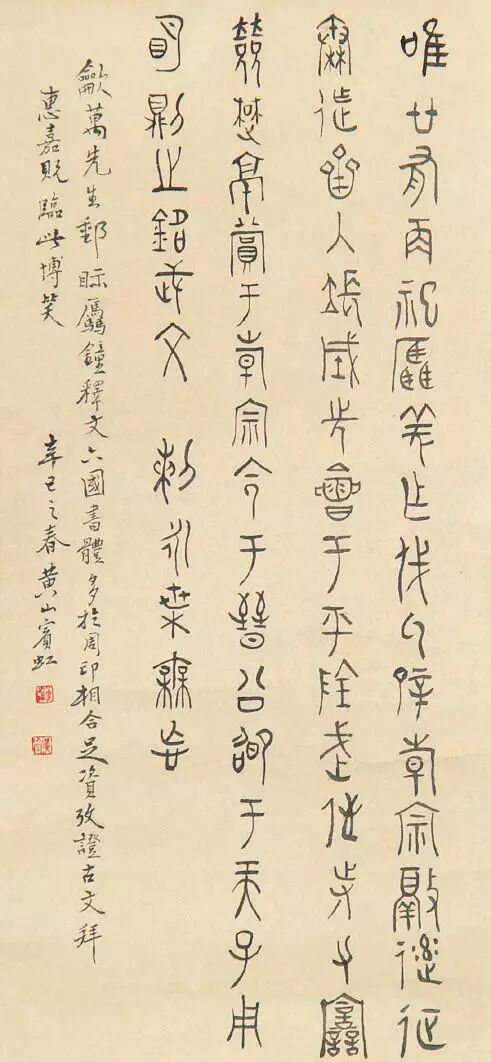 唯廿又再祀驫羌乍戎氒辟韓宗徹率征
秦迮齊入長城先會于平陰武侄寺力
敓楚京賞于韓宗令于晉公邵于天子用
明則之銘武文 剌永世毋忘
萬先生郵眎驫鐘釋文六國書體多於周印相合足資攷證古文拜
惠嘉貺臨此博笑 辛巳之春黃山賓虹